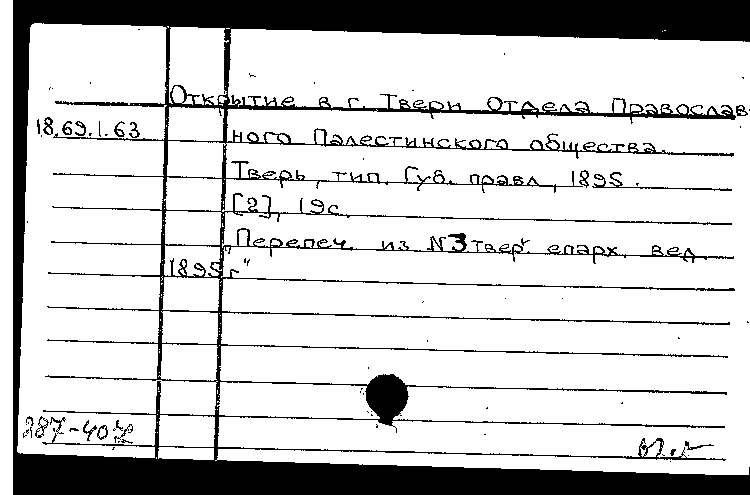 Открытие в г. Твери Отдела Православ-
18.69.1.63
ного Палестинского общества.
Тверь, тип. Губ. правл, 1895.
[2], 19с.
„Перепеч. из N3 твер. епарх. вед.
1895 г"
287-407